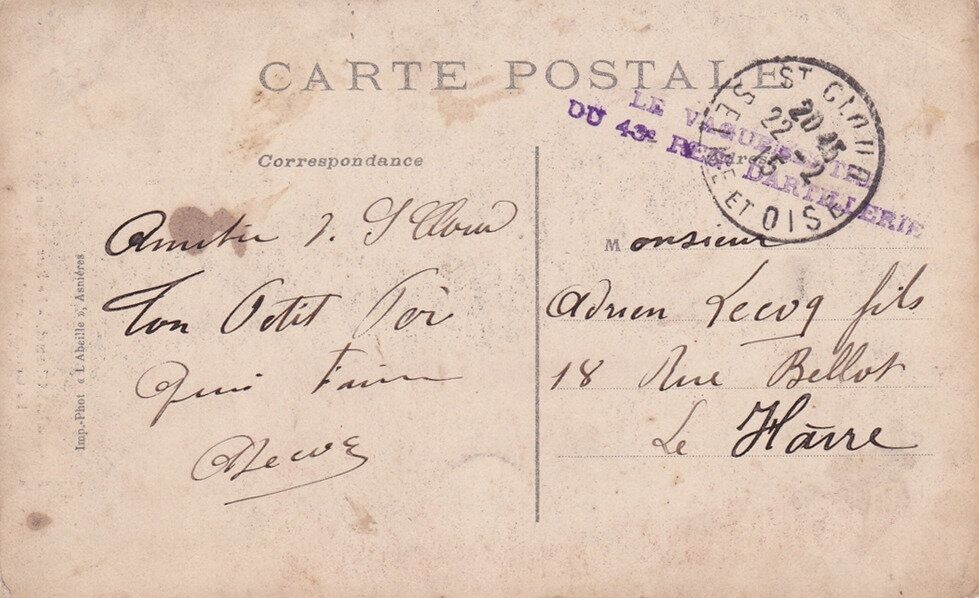 CARTE POSTALE
LE VAGUEMESTRE
DU 43e REGt D'ARTILLERIE
ST CLOUD
20 45
22 - 2
15
SEINE ET OISE
Correspondance
Adresse
Monsieur
Adrien Lecoq fils
18 Rue Bellot
Le Hâvre
Amitié de St Cloud
Ton Petit Père
Qui t'aime
ALecoq
Imp.-Phot « L'Abeille », Asnières